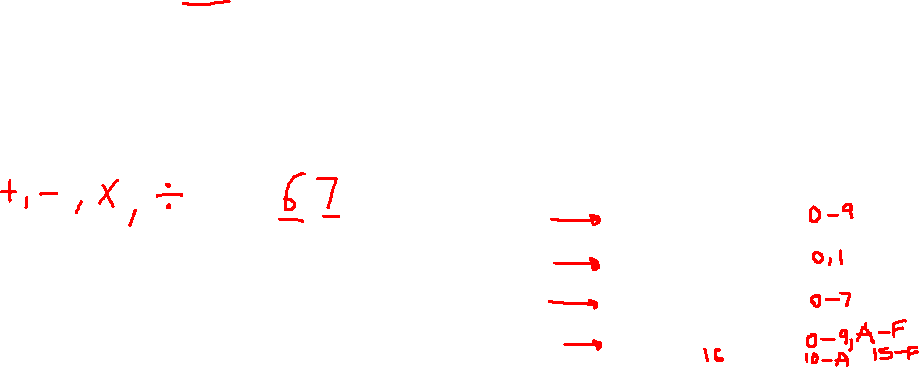 +, -, x, ÷ 67
→ 0-9
→ 0,1
→ 0-7
→ 0-9, A-F
16 10-A 15-F